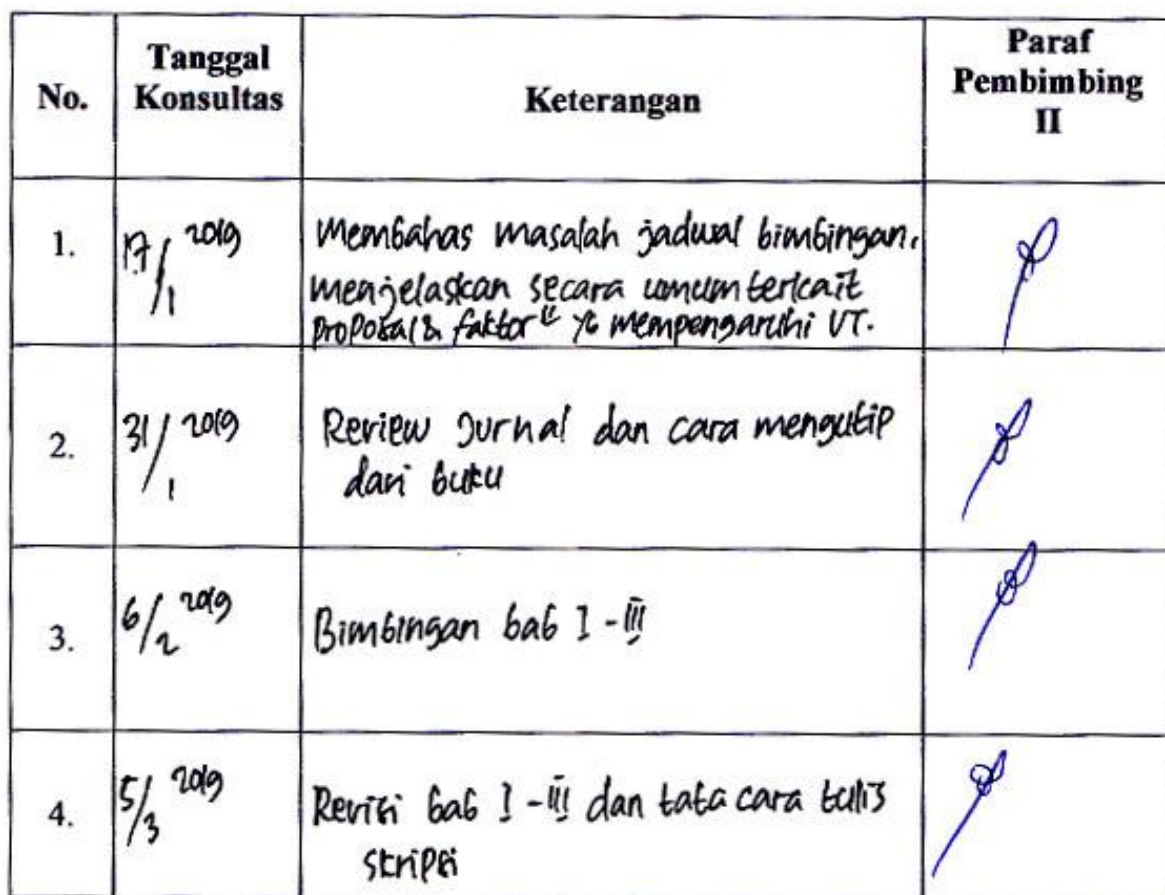 No.
Tanggal
Konsultas
Keterangan
Paraf
Pembimbing
II
1.
17/1 2019
Membahas masalah jadwal bimbingan.
menjelaskan secara umum terkait
proposal & faktor" yg mempengaruhi VT.
2.
31/1 2019
Review Jurnal dan cara mengutip
dari buku
3.
6/2 2019
Bimbingan bab I - III
4.
5/3 2019
Revisi bab I - III dan tata cara tulis
skripsi